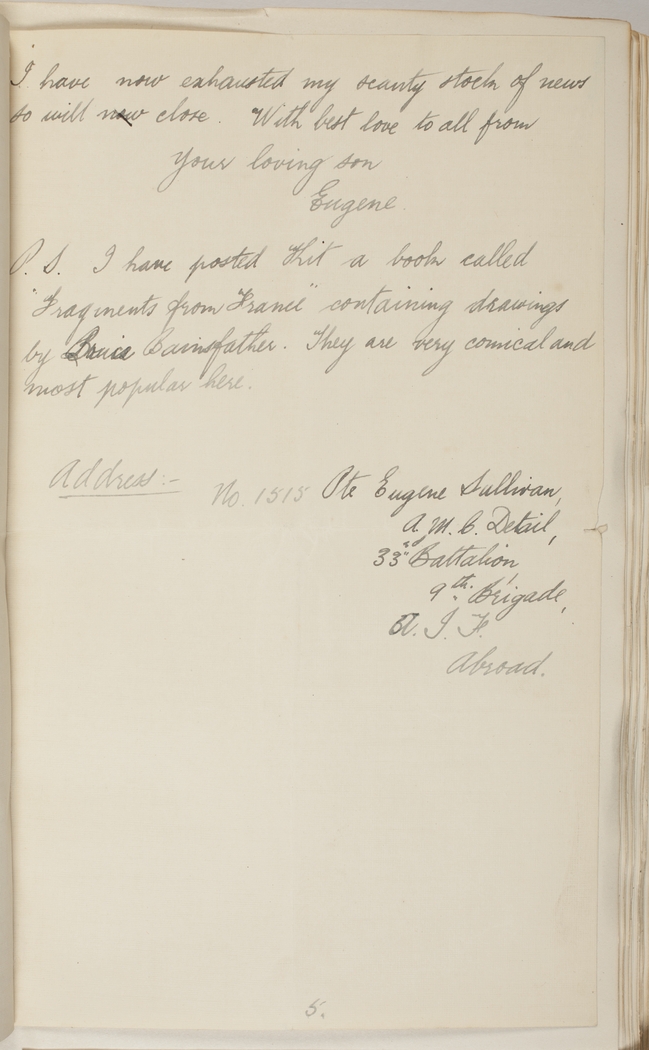 I have now exhausted my scanty stock of news
so will now close. With best love to all from
Your loving son
Eugene.
P. S. I have posted Kit a book called
"Fragments from France" containing drawings
by Bruce Bainsfather. They are very comical and
most popular here.
Address:-
No. 1515 Pte Eugene Sullivan,
A. M. C. Detail,
33rd Battalion,
9th. Brigade,
A. I. F.
Abroad.
5.